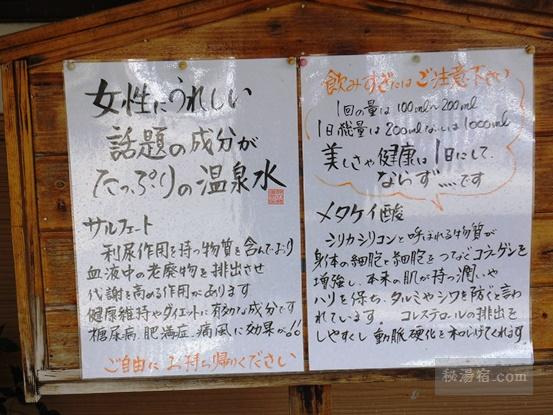 女性にうれしい
話題の成分が
たっぷりの温泉水
サルフェート
利尿作用を持つ物質を含んでおり
血液中の老廃物を排出させ
代謝を高める作用があります
健康維持やダイエットに有効な成分です
糖尿病、肥満症、痛風に効果が!!
ご自由にお持ち帰りください
飲みすぎにはご注意下さい
1回の量は100ml~200ml
1日総量は200mlないしは1000ml
美しさや健康は1日にして、
ならず……です
メタケイ酸
シリカシリコンと呼ばれる物質が
身体の細胞と細胞をつなぐコラーゲンを
増強し、本来の肌が持つ潤いや
ハリを保ち、タルミやシワを防ぐと言わ
れています コレステロールの排出を
しやすくし動脈硬化を和らげてくれます。
秘湯宿.com